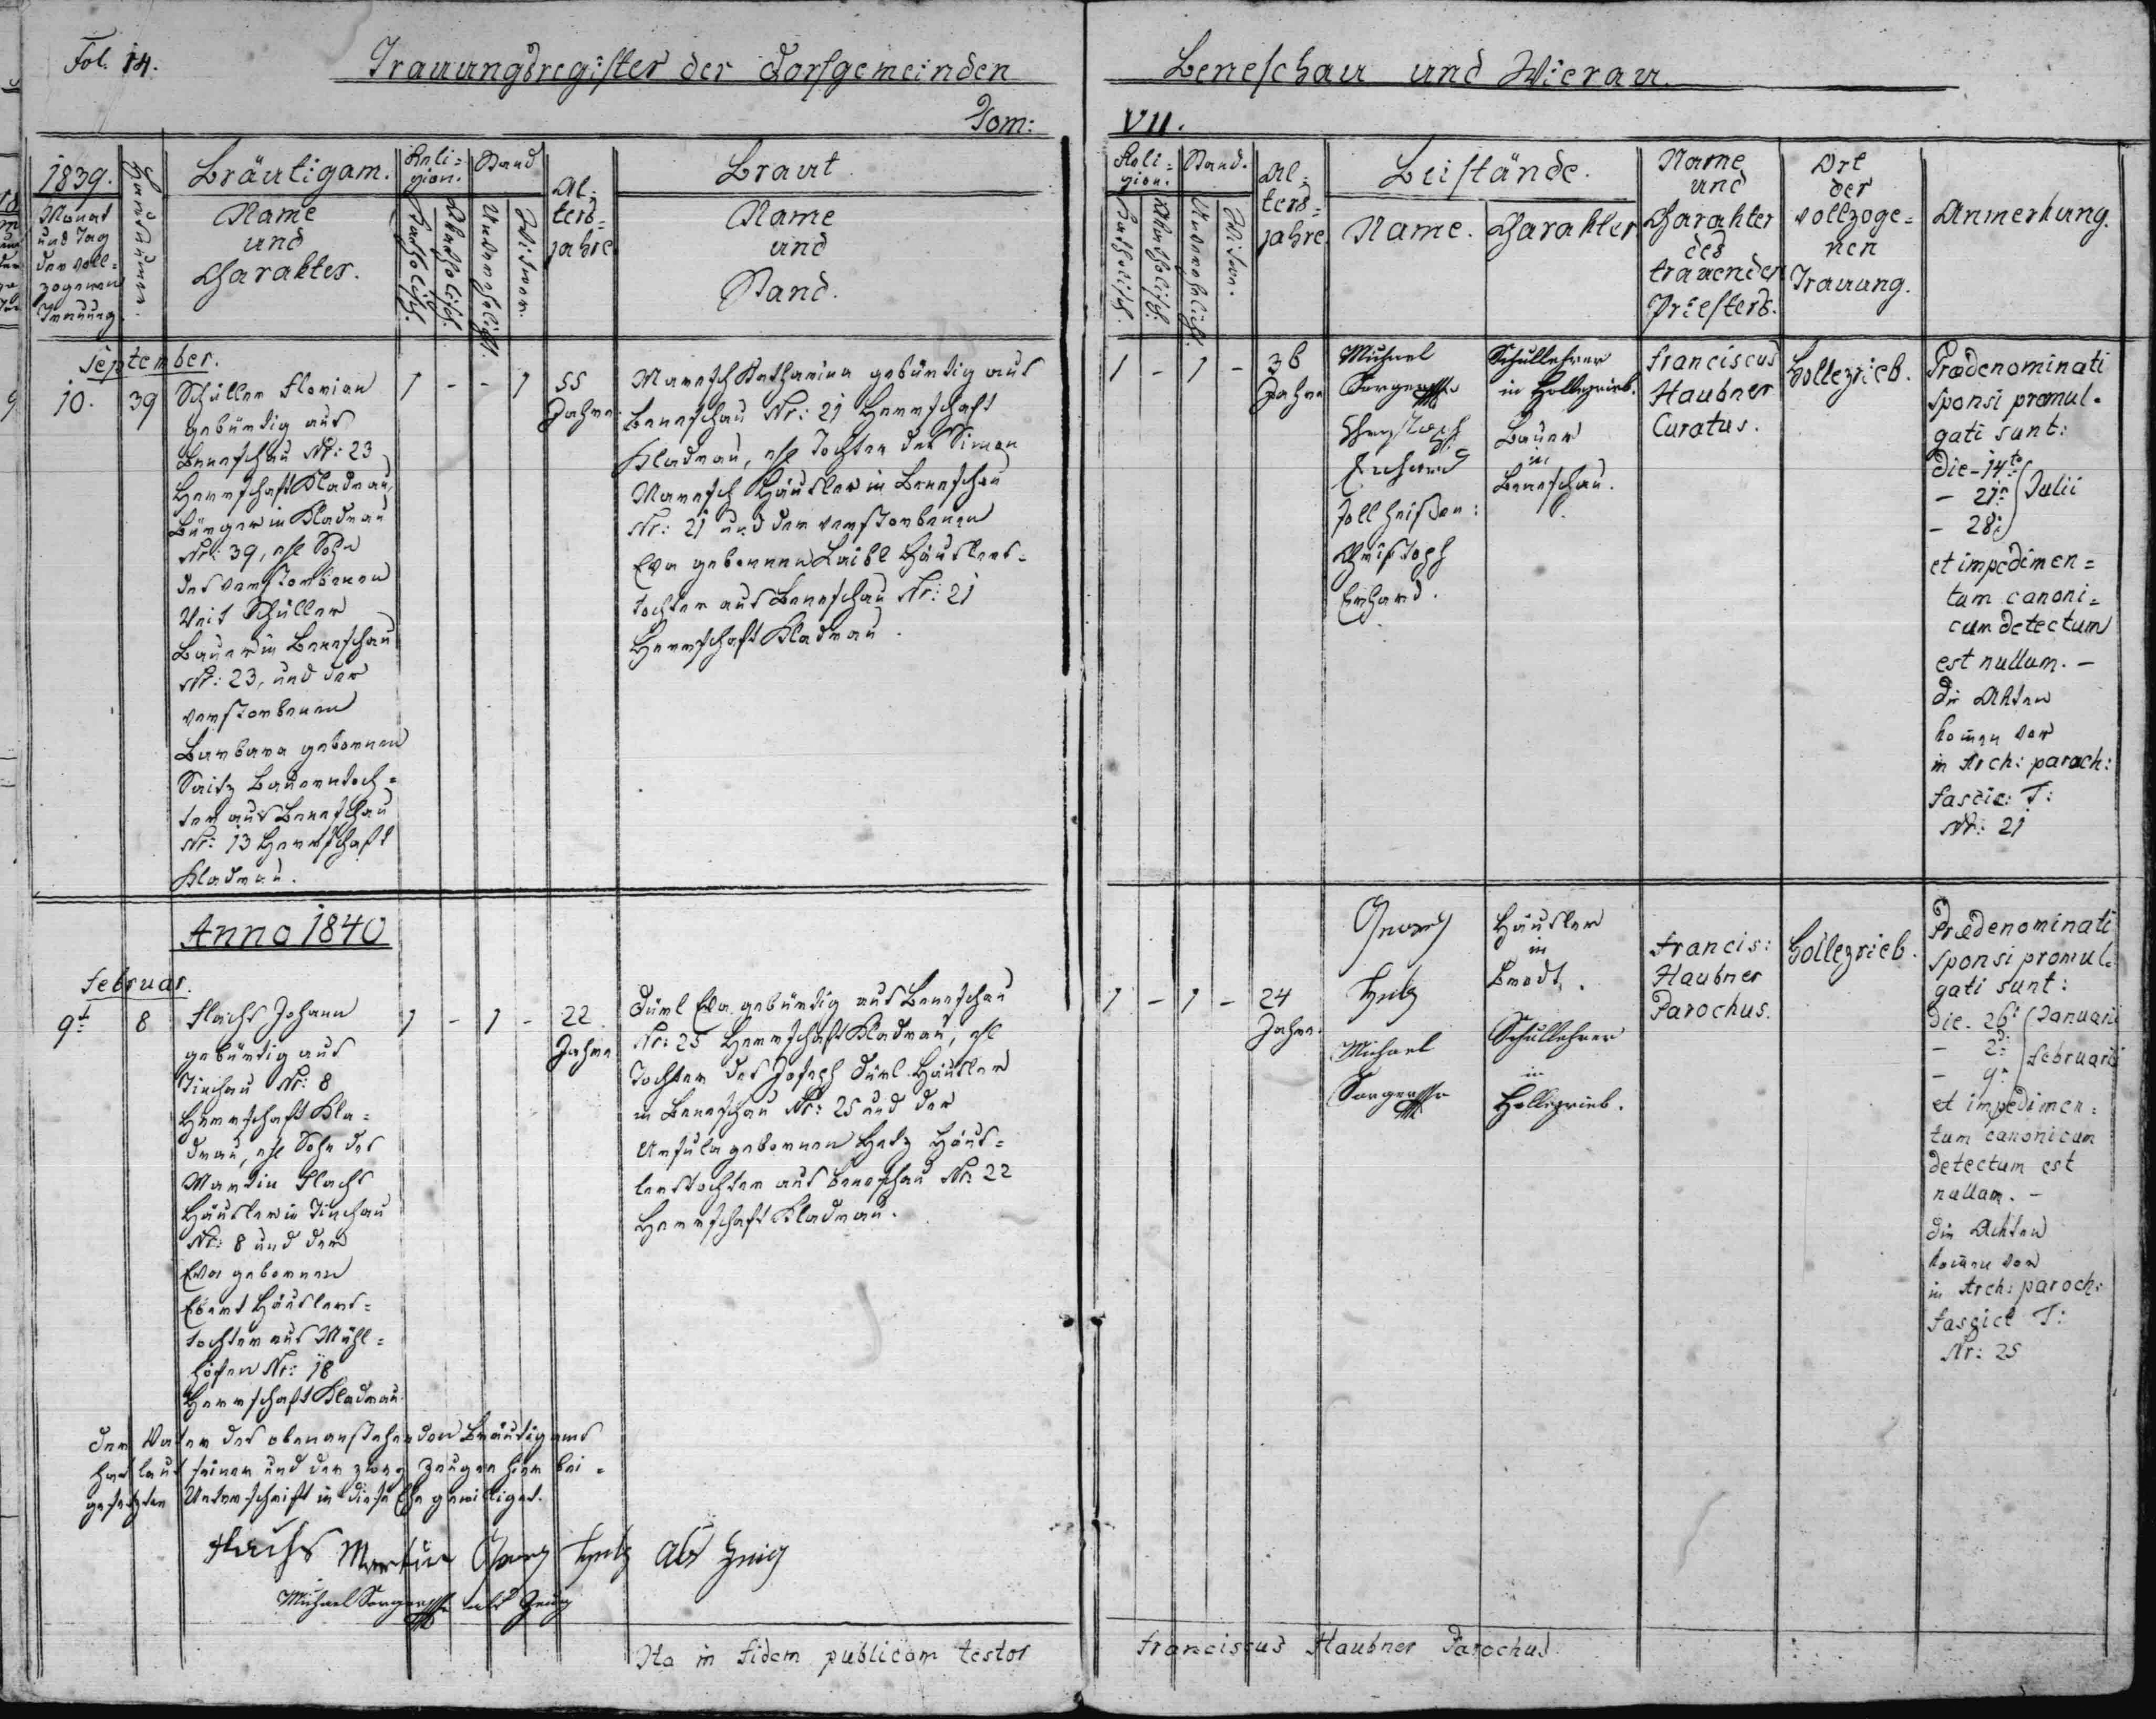 Fol. 14.
Trauungsregister der Dorfgemeinden
Beneschau und Wierau.
Tom: VII.
1839.
Monat
und Tag
der voll=
zogenen
Trauung.
Hausnum.
Bräutigam.
Name
und
Charakter.
Reli=
gion.
Katholisch.
Akatholisch.
Stand
Unverehlicht.
Witwer.
Al=
ters=
jahre
Braut
Name
und
Stand.
Reli=
gion.
Katholisch.
Akatholisch.
Stand.
Unverehlicht.
Witwe.
Al=
ters=
jahre
Beistände.
Name.
Charakter
Name
und
Charakter
des
trauenden
Priesters.
Ort
der
vollzoge=
nen
Trauung.
Anmerkung.
September.
10.
39
Schüller Florian
gebürtig aus
Beneschau Nr: 23
Herrschaft Kladrau,
Bürger in Kladrau
Nr: 39, ehl Sohn
des verstorbenen
Veit Schüller
Bauer in Beneschau
Nr: 23, und der
verstorbenen
Barbara gebornen
Saitz Bauerntoch=
ter aus Beneschau
Nr: 13 Herrschaft
Kladrau.
1 - - 1
55
Jahre
Maresch Katharina gebürtig aus
Beneschau Nr: 21 Herrschaft
Kladrau, ehl Tochter des Simon
Maresch Häusler in Beneschau
Nr: 21 und der verstorbenen
Eva gebornen Laibl Häuslers=
tochter aus Beneschau Nr: 21
Herrschaft Kladrau.
1 - 1 -
36
Jahre
Michael
Schullehrer
in Hollezrieb.
Erhard
Bauer
in
Beneschau.
soll heißen:
Christoph
Erhard.
Franciscus
Haubner
Curatus.
Hollezrieb.
Prædenominati
Sponsi promul=
gati sunt:
die - 14ta
- 21a Julii
- 28a
et impedimen=
tum canoni=
cum detectum
est nullum. -
Die Akten
komen vor
in Arch: paroch:
fascic: T:
Nr: 21
Anno 1840
Februar.
9t
8
Flachs Johann
gebürtig aus
Tinchau Nr: 8
Herrschaft Kla=
drau, ehl Sohn des
Martin Flachs
Häusler in Tinchau
Nr: 8 und der
Eva gebornen
Ebert Häuslers=
tochter aus Mühl=
höfen Nr: 18
Herrschaft Kladrau.
1 - 1 -
22
Jahre
Dürl Eva gebürtig aus Beneschau
Nr: 25 Herrschaft Kladrau, ehl
Tochter des Joseph Dürl Häusler
in Beneschau Nr: 25 und der
Ursula gebornen Hetz Häus=
lerstochter aus Beneschau Nr: 22
Herrschaft Kladrau.
1 - 1 -
24
Jahre
Georg
Häusler
in
Michael
Schullehrer
in
Hollezrieb.
Francis:
Haubner
Parochus.
Hollezrieb.
Prædenominati
Sponsi promul=
gati sunt:
die. 26a Januarii
- 2a Februarii
- 9a
et impedimen=
tum canonicum
detectum est
nullum. -
Die Akten
komen vor
in Arch: paroch:
fascicl T:
Nr: 25
Der Vater des obenanstehenden Bräutigams
hat laut seiner und der zwey Zeugen hier bei=
gesetzten Unterschrift in diese Ehe gewilliget.
Flachs Martin Georg als Zeig
Michael als Zeug
Ita in fidem publicam testor
Franciscus Haubner Parochus.